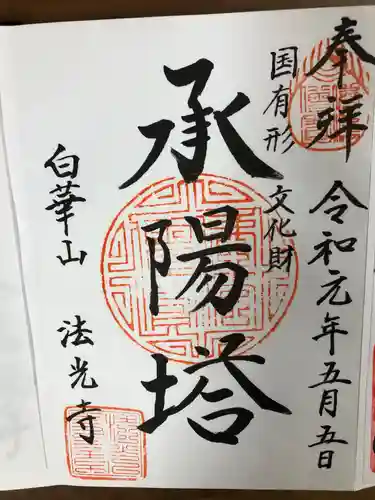 奉拝
令和元年五月五日
国有形
文化財
承陽塔
白華山
法光寺